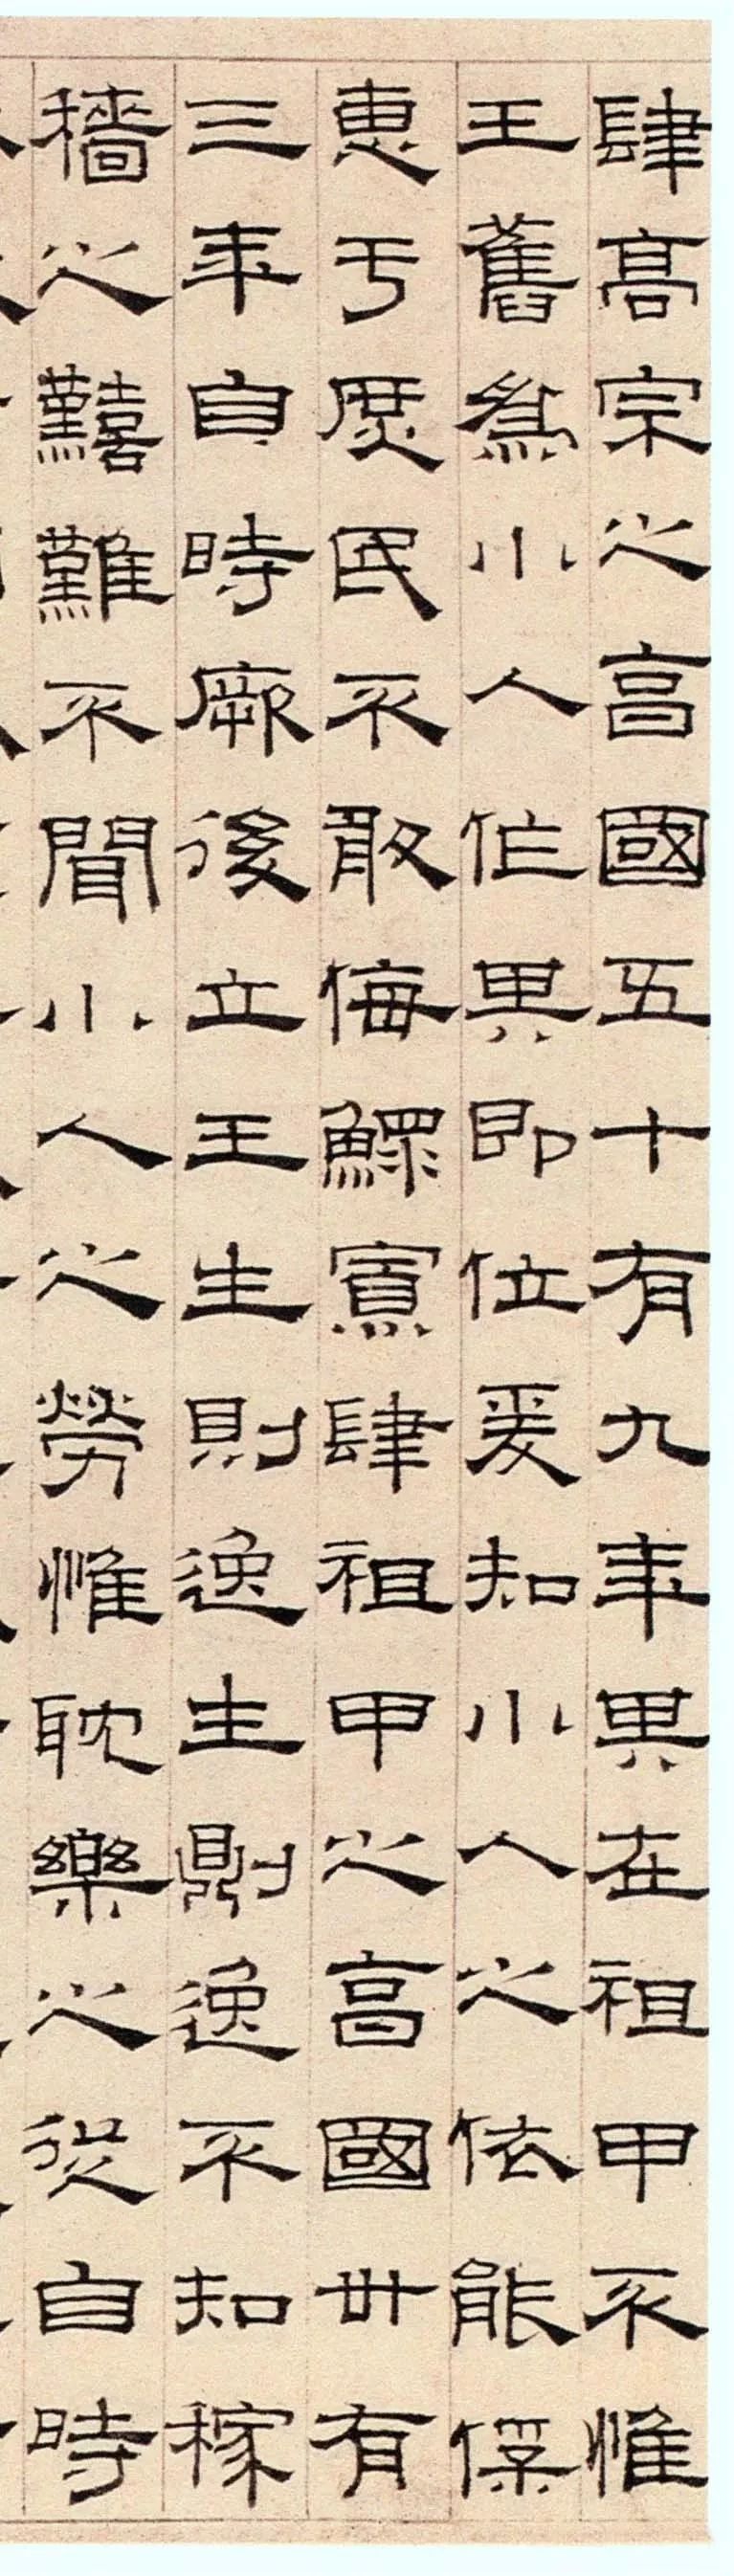 肆高宗之亯國五十有九年其在祖甲不惟
王舊為小人作其即位爰知小人之依能保
惠于庶民不敢侮鰥寡肆祖甲之亯國卅有
三年自時厥後立王生則逸生則逸不知稼
穡之囏難不聞小人之勞惟耽樂之從自時